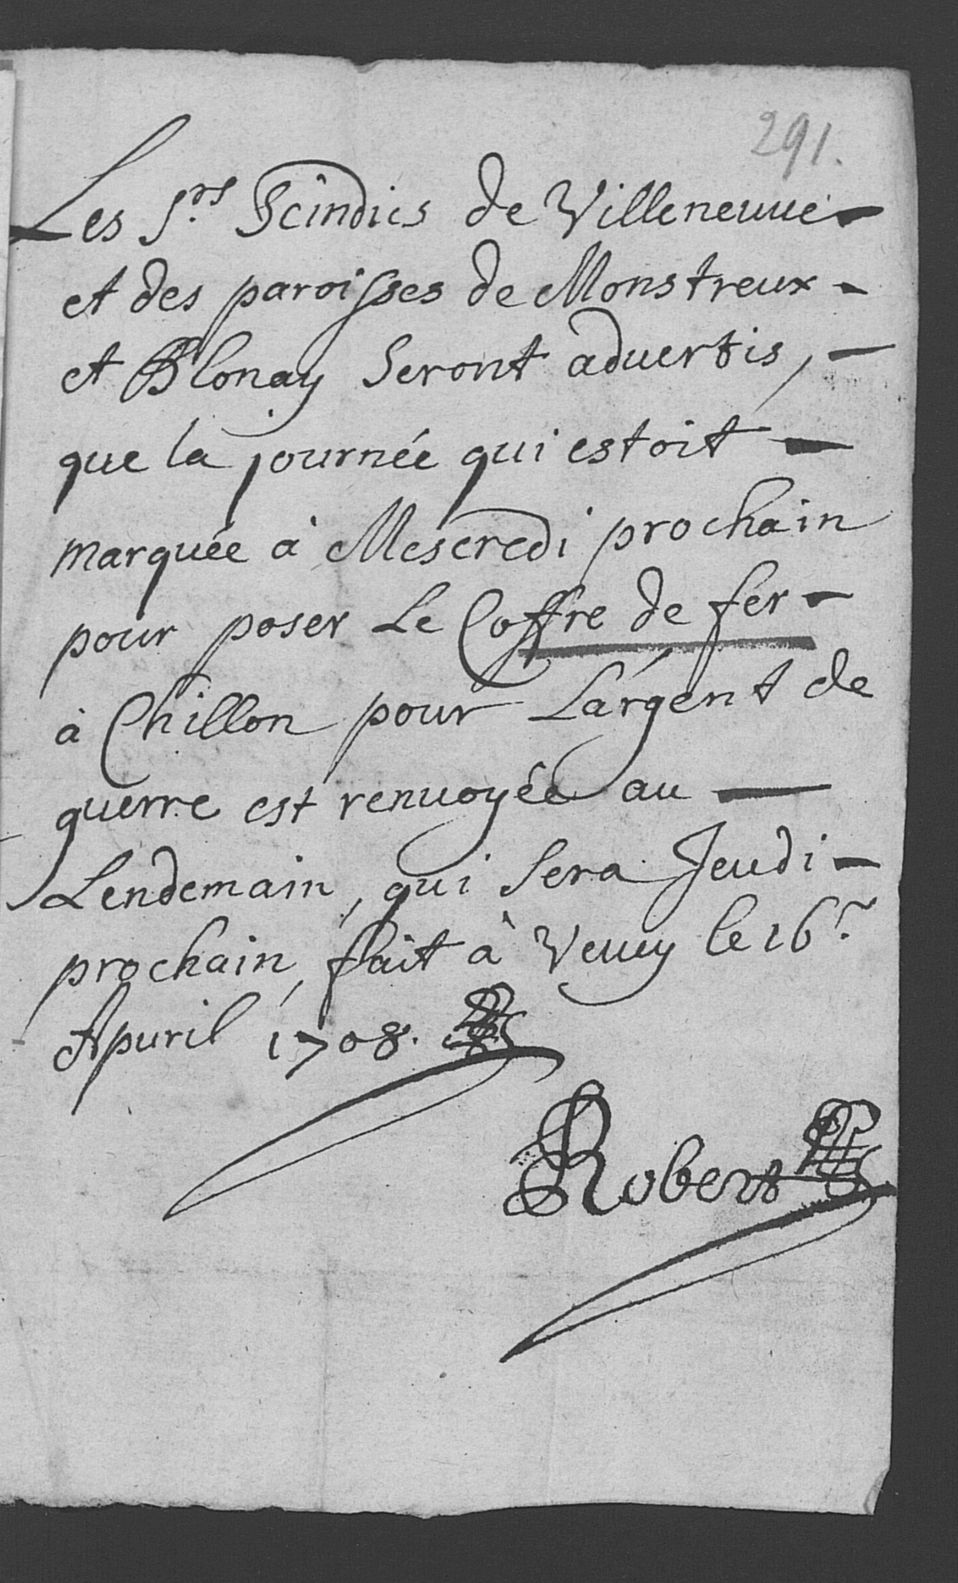 291.
Les S.rs Scindics de Villeneuue
et des paroisses de Monstreux
et Blonay Seront aduertis,
que la journée qui estoit
marquée à Mescredi prochain
pour poser Le Coffre de fer
à Chillon pour Largent de
guerre est renuoyée au
Lendemain, qui Sera Jeudi
prochain, fait à Veuey le 16.e
Apuril 1708.
Robert